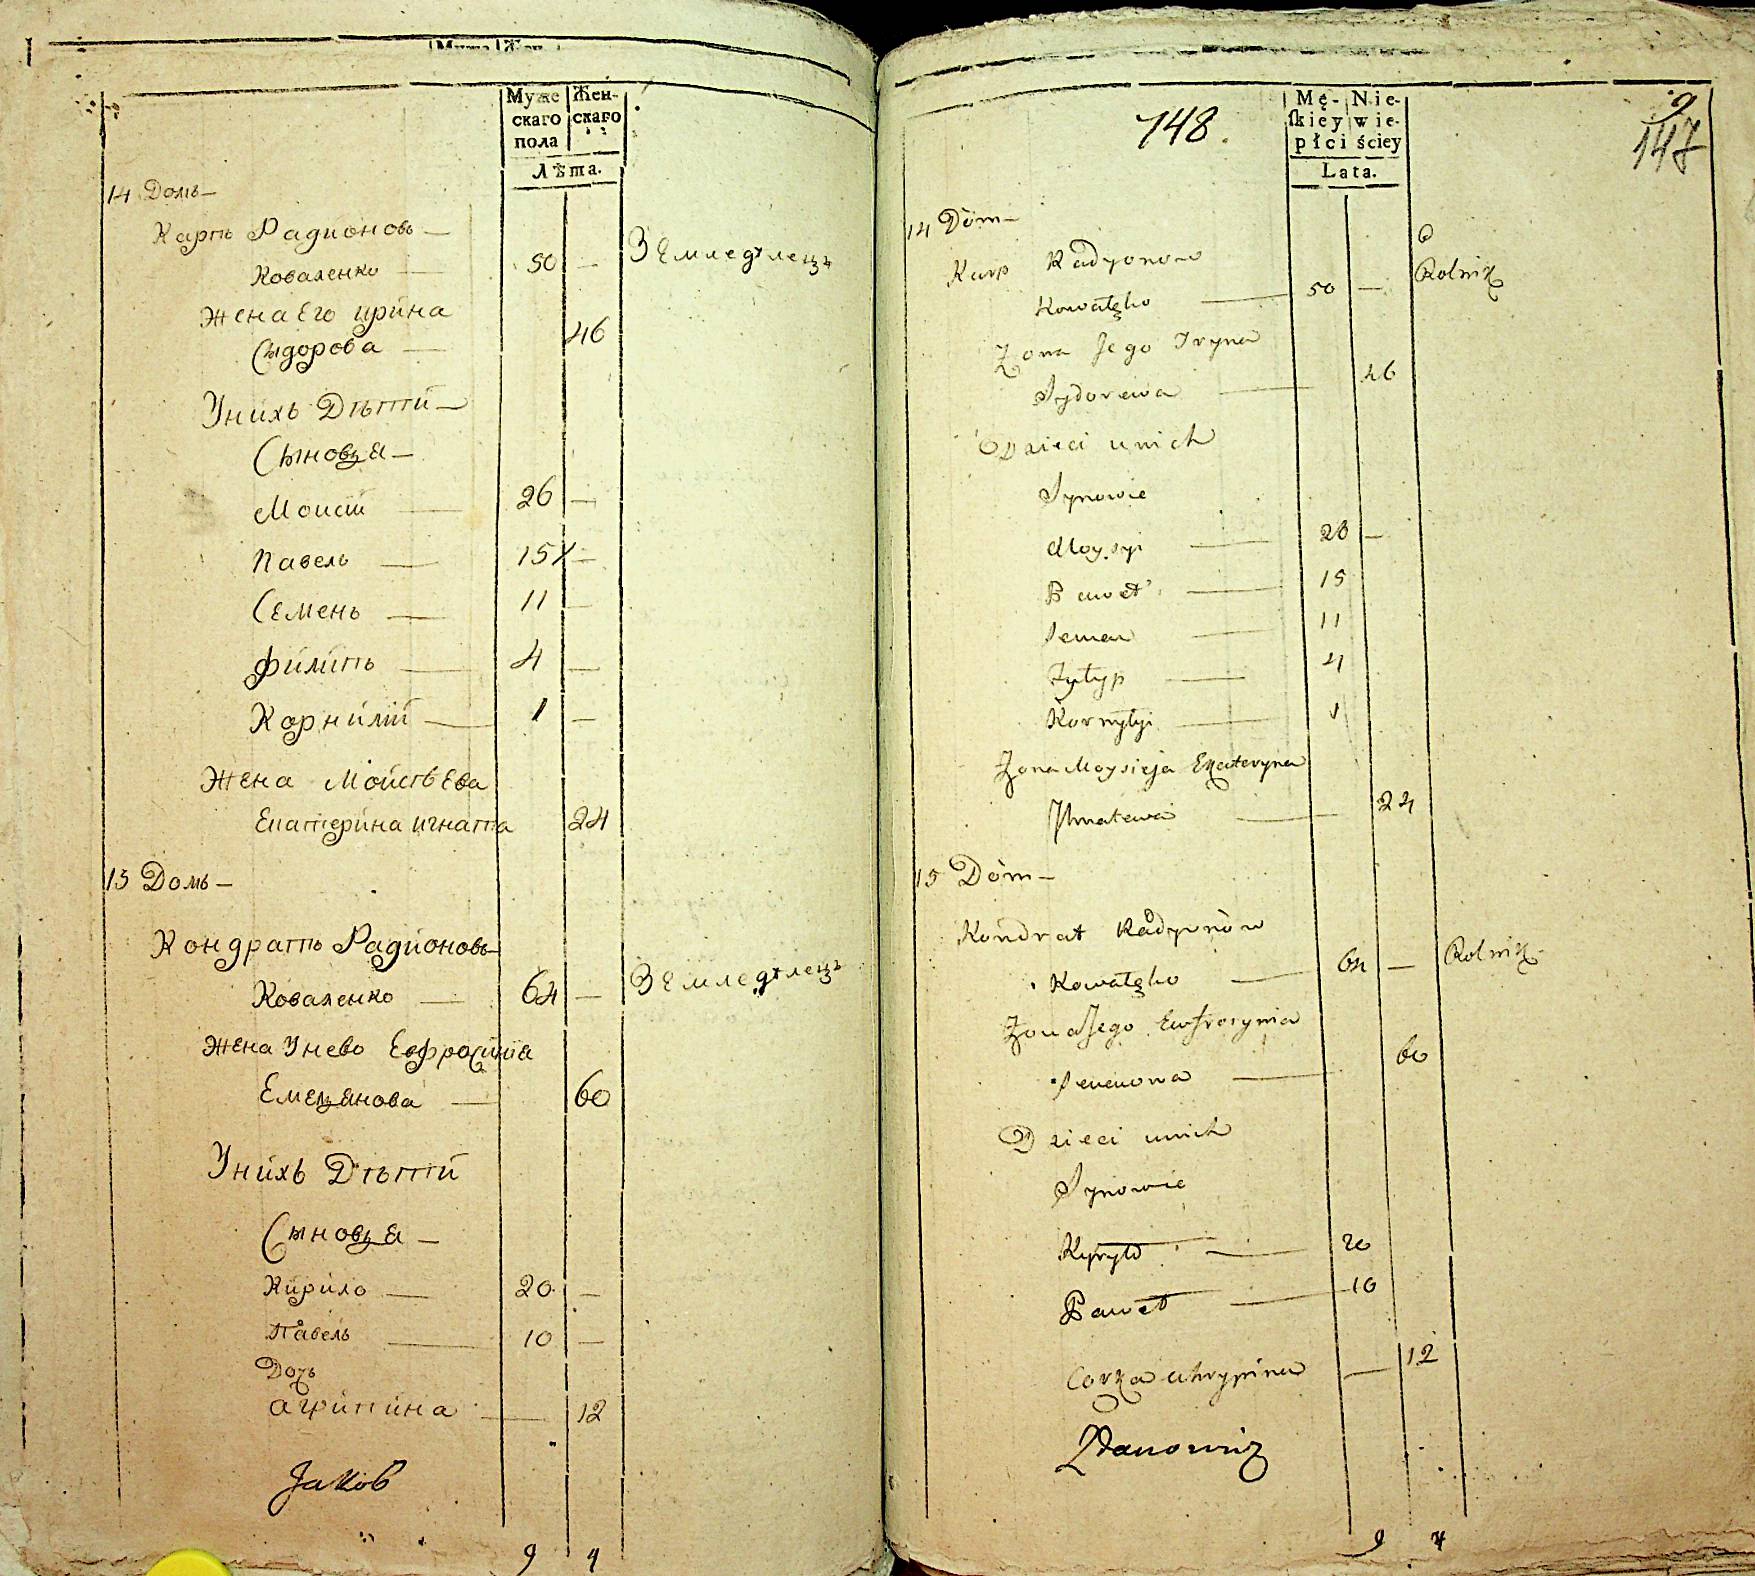 Муже Жен-
скаго скаго
пола
Лѣта.
14 Домъ —
Карпъ Радионовъ —
Коваленко — 50 — Земледѣлецъ
Жена Его Ирина
Сидорова — 46
Унихъ Дѣти —
Сыновья —
Моисій — 26 —
Павелъ — 15 —
Семенъ — 11 —
Филипъ — 4 —
Корнилій — 1 —
Жена Моисѣева
Екатерина Игната 24
15 Домъ —
Кондратъ Радионовъ —
Коваленко — 64 — Земледѣлецъ
Жена Унево Евфросинія
Емельянова — 60
Унихъ Дѣти
Сыновья —
Кирило — 20 —
Павелъ — 10 —
Дочь
Агрипина — 12
Jakob
9 4
9
148. 147
Mę- Nie-
skiey wie-
płci ściey
Lata.
14 Dòm —
Karp Radyonow
Kowalęko — 50 — Rolnik
Zona Jego Iryna
Sydorewa — 46
Dzieci unich
Synowie
Moysyi — 26 —
Paweł — 15
Semen — 11
Fyłyp — 4
Kornyłyi — 1
Zona Moysieja Ekateryna
Ihnatewa — 24
15 Dòm —
Kondrat Radyonòw
Kowalęko — 64 — Rolnik
Zona Jego Ewfrosynia
Semenowa — 60
Dzieci unich
Synowie
Kyryło — 20
Paweł — 10
Corka Ahrypina — 12
Zdanowicz
9 4